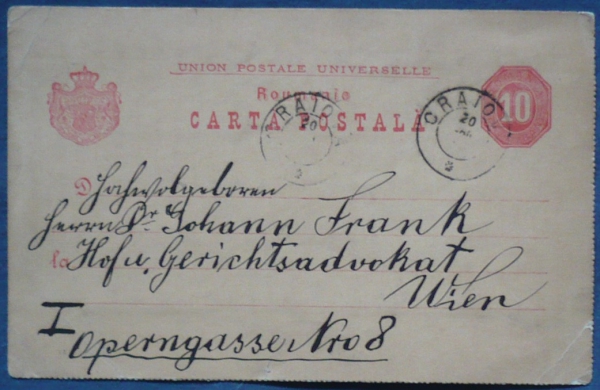 UNION POSTALE UNIVERSELLE
Roumanie
CARTA POSTALĂ
10
CRAIOV
20
CRAIOV
20
D Hochwolgeboren
Herrn Dr. Johann Frank
la Hof u. Gerichtsadvokat
Wien
I Operngasse Nro 8